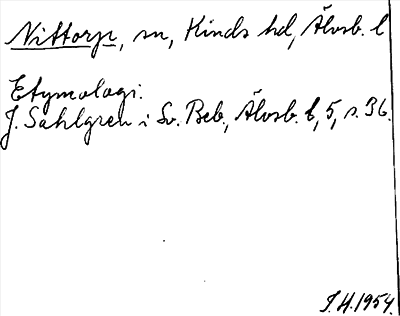 Nittorp, sn, Kinds hd, Älvsb. l
Etymologi:
J. Sahlgren i Sv. Beb., Älvsb. l, 5, s. 36.
I.H.1954.